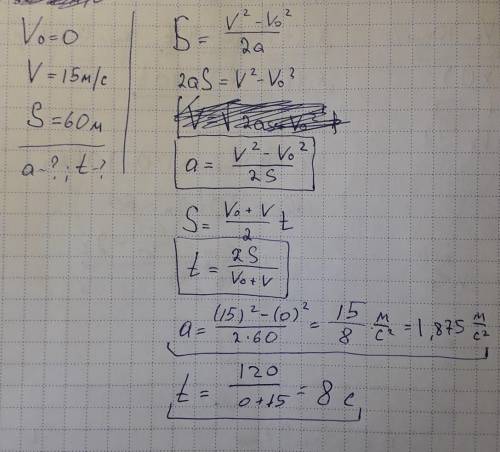 V₀=0
V=15м/с
S=60м
a-?; t-?
S = (V²-V₀²)/2a
2aS = V²-V₀²
a = (V²-V₀²)/2S
S = (V₀+V)/2 t
t = 2S/(V₀+V)
a = ((15)²-(0)²)/(2·60) = 15/8 м/с² = 1,875 м/с²
t = 120/(0+15) = 8 с